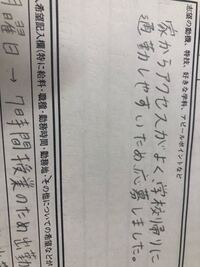 志望の動機、特技、好きな学科、アピールポイントなど
家からアクセスがよく学校帰りに
通勤しやすいため応募しました。
希望記入欄(特に給料・職種・勤務時間・勤務地、その他についての希望などが
月曜日→7時間授業のため出勤